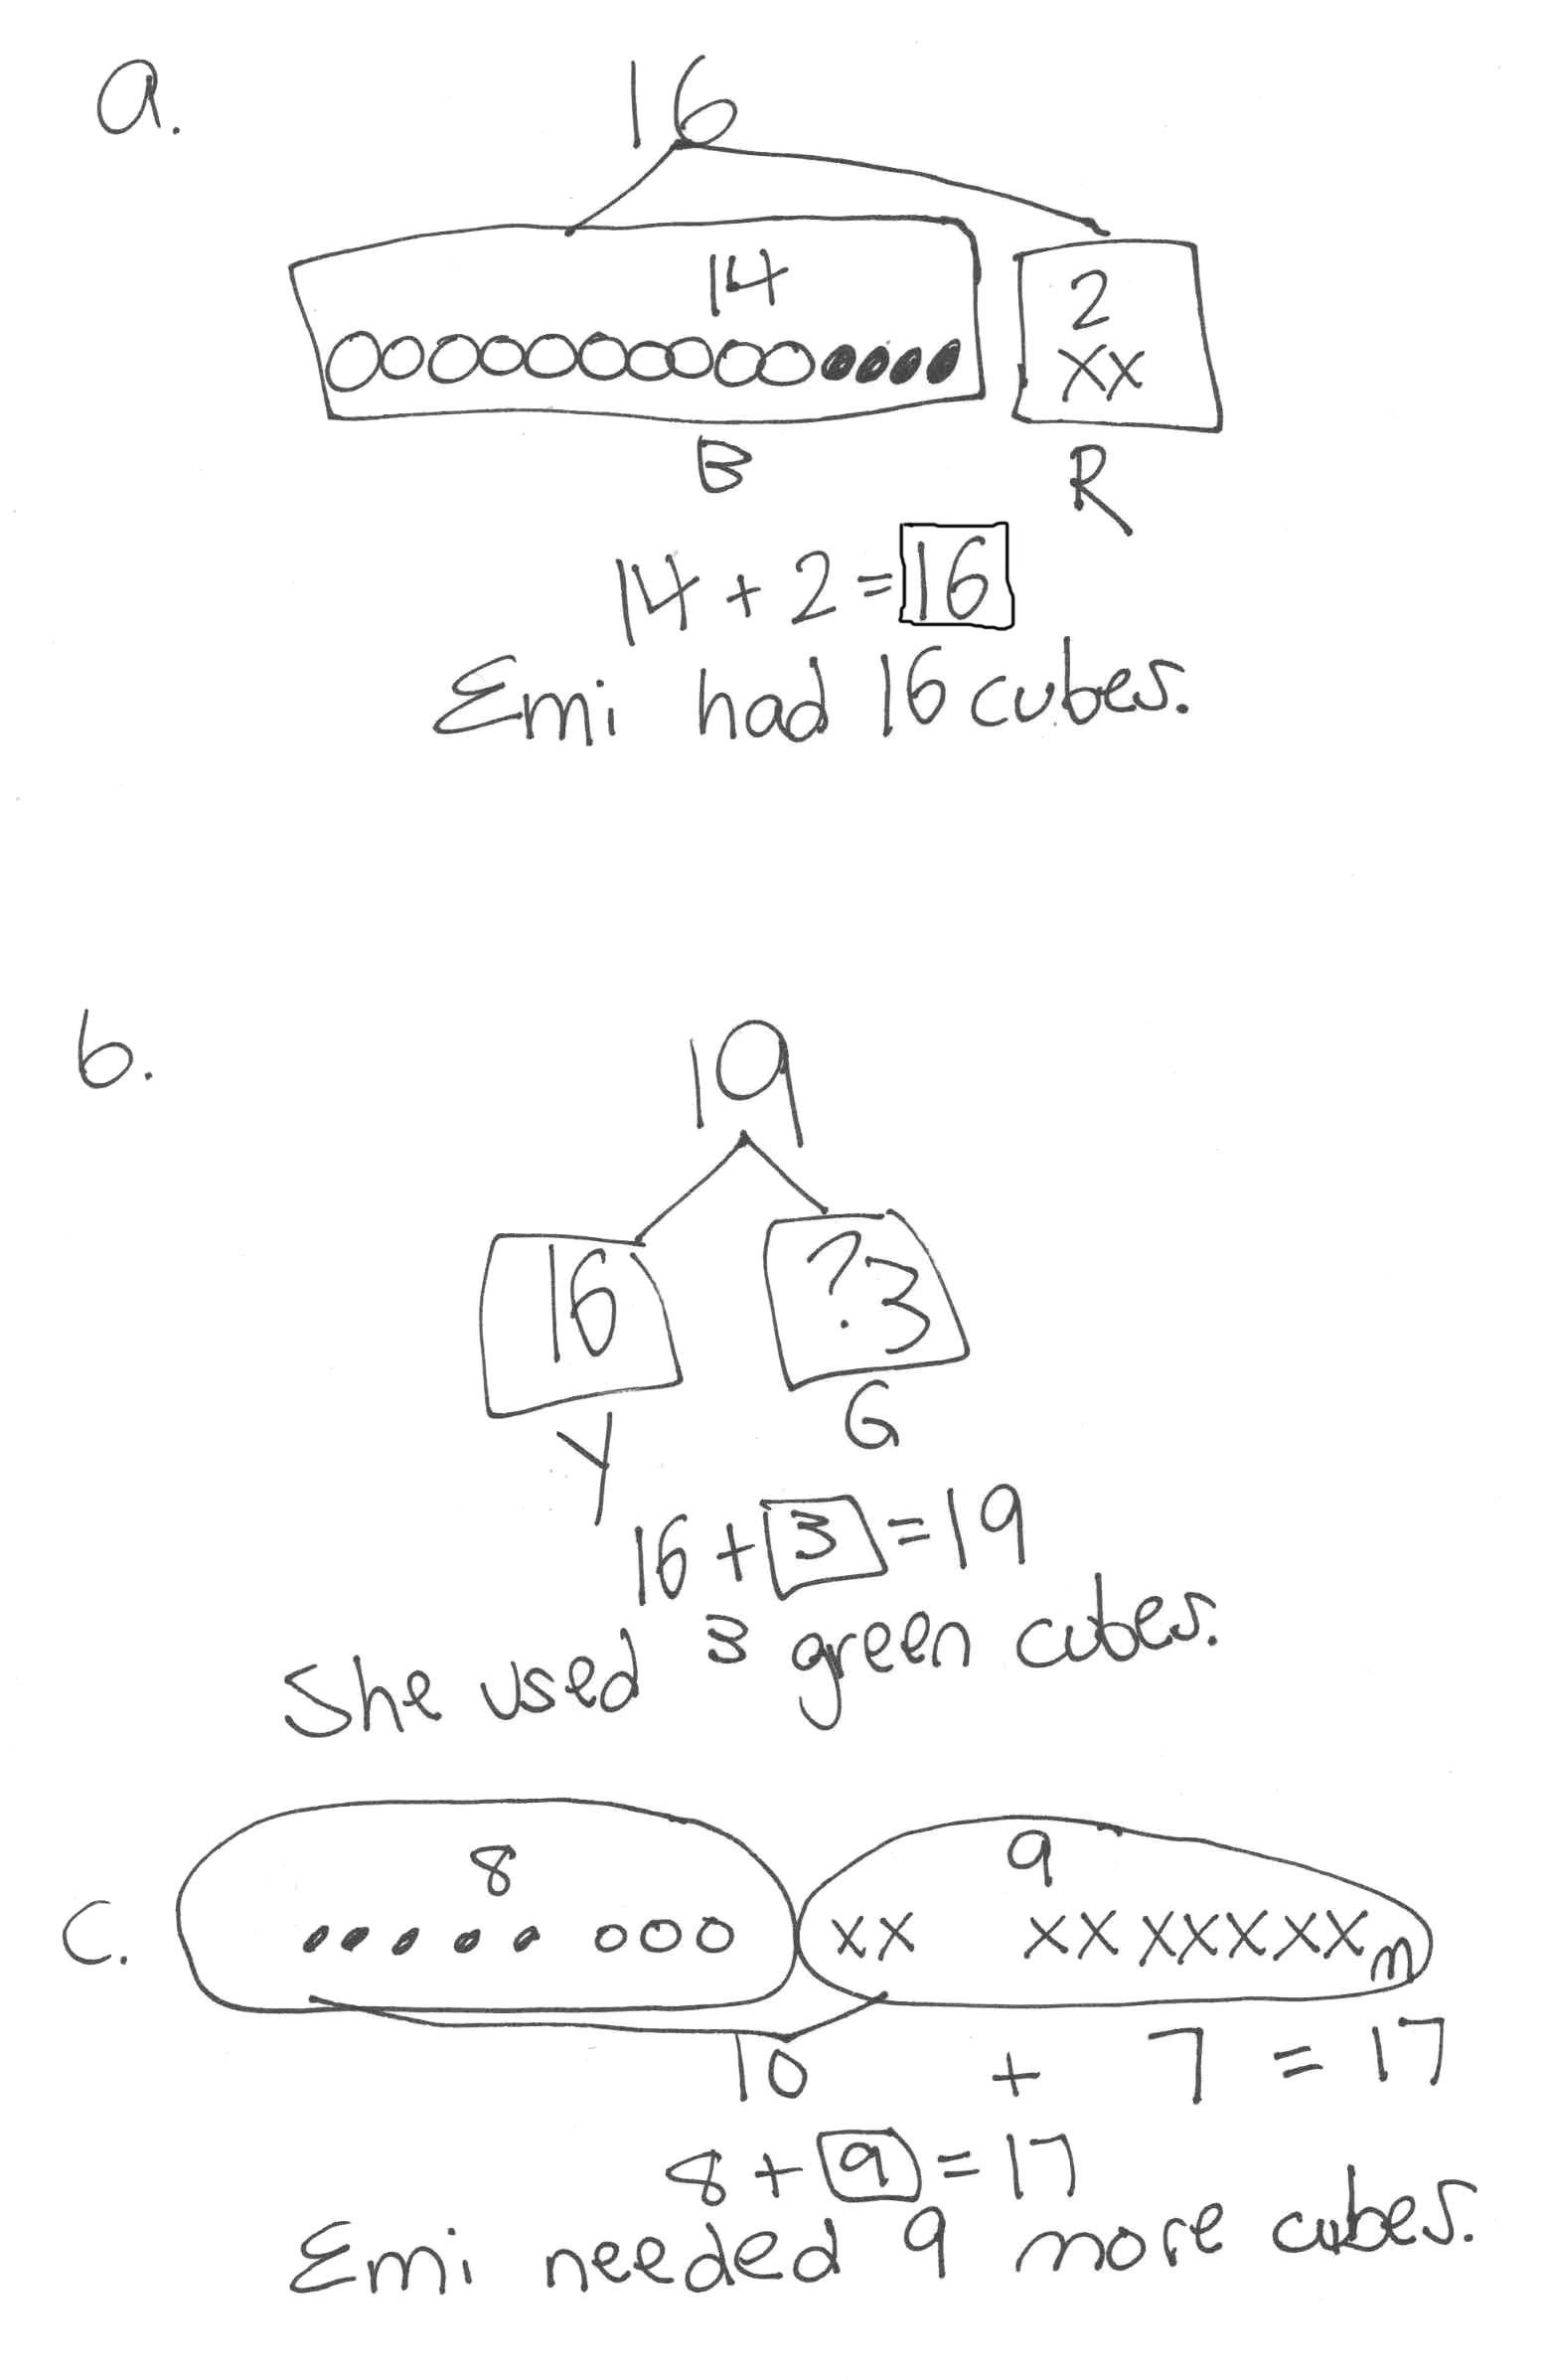 a.
16
14
2
XX
B
R
14 + 2 = 16
Emi had 16 cubes.
b.
19
16
? 3
Y
G
16 + 3 = 19
She used 3 green cubes.
c.
8
9
XX XXXXXXX m
10 + 7 = 17
8 + 9 = 17
Emi needed 9 more cubes.